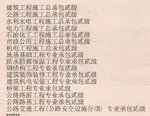 建筑工程施工总承包贰级
公路工程施工总承包贰级
水利水电工程施工总承包贰级
电力工程施工总承包贰级
石油化工工程施工总承包贰级
市政公用工程施工总承包贰级
机电工程施工总承包贰级
地基基础工程专业承包贰级
防水防腐保温工程专业承包贰级
钢结构工程专业承包贰级
建筑装修装饰工程专业承包贰级
建筑幕墙工程专业承包贰级
桥梁工程专业承包贰级
公路路面工程专业承包贰级
公路路基工程专业承包贰级
公路交通工程(公路安全设施分项)专业承包贰级